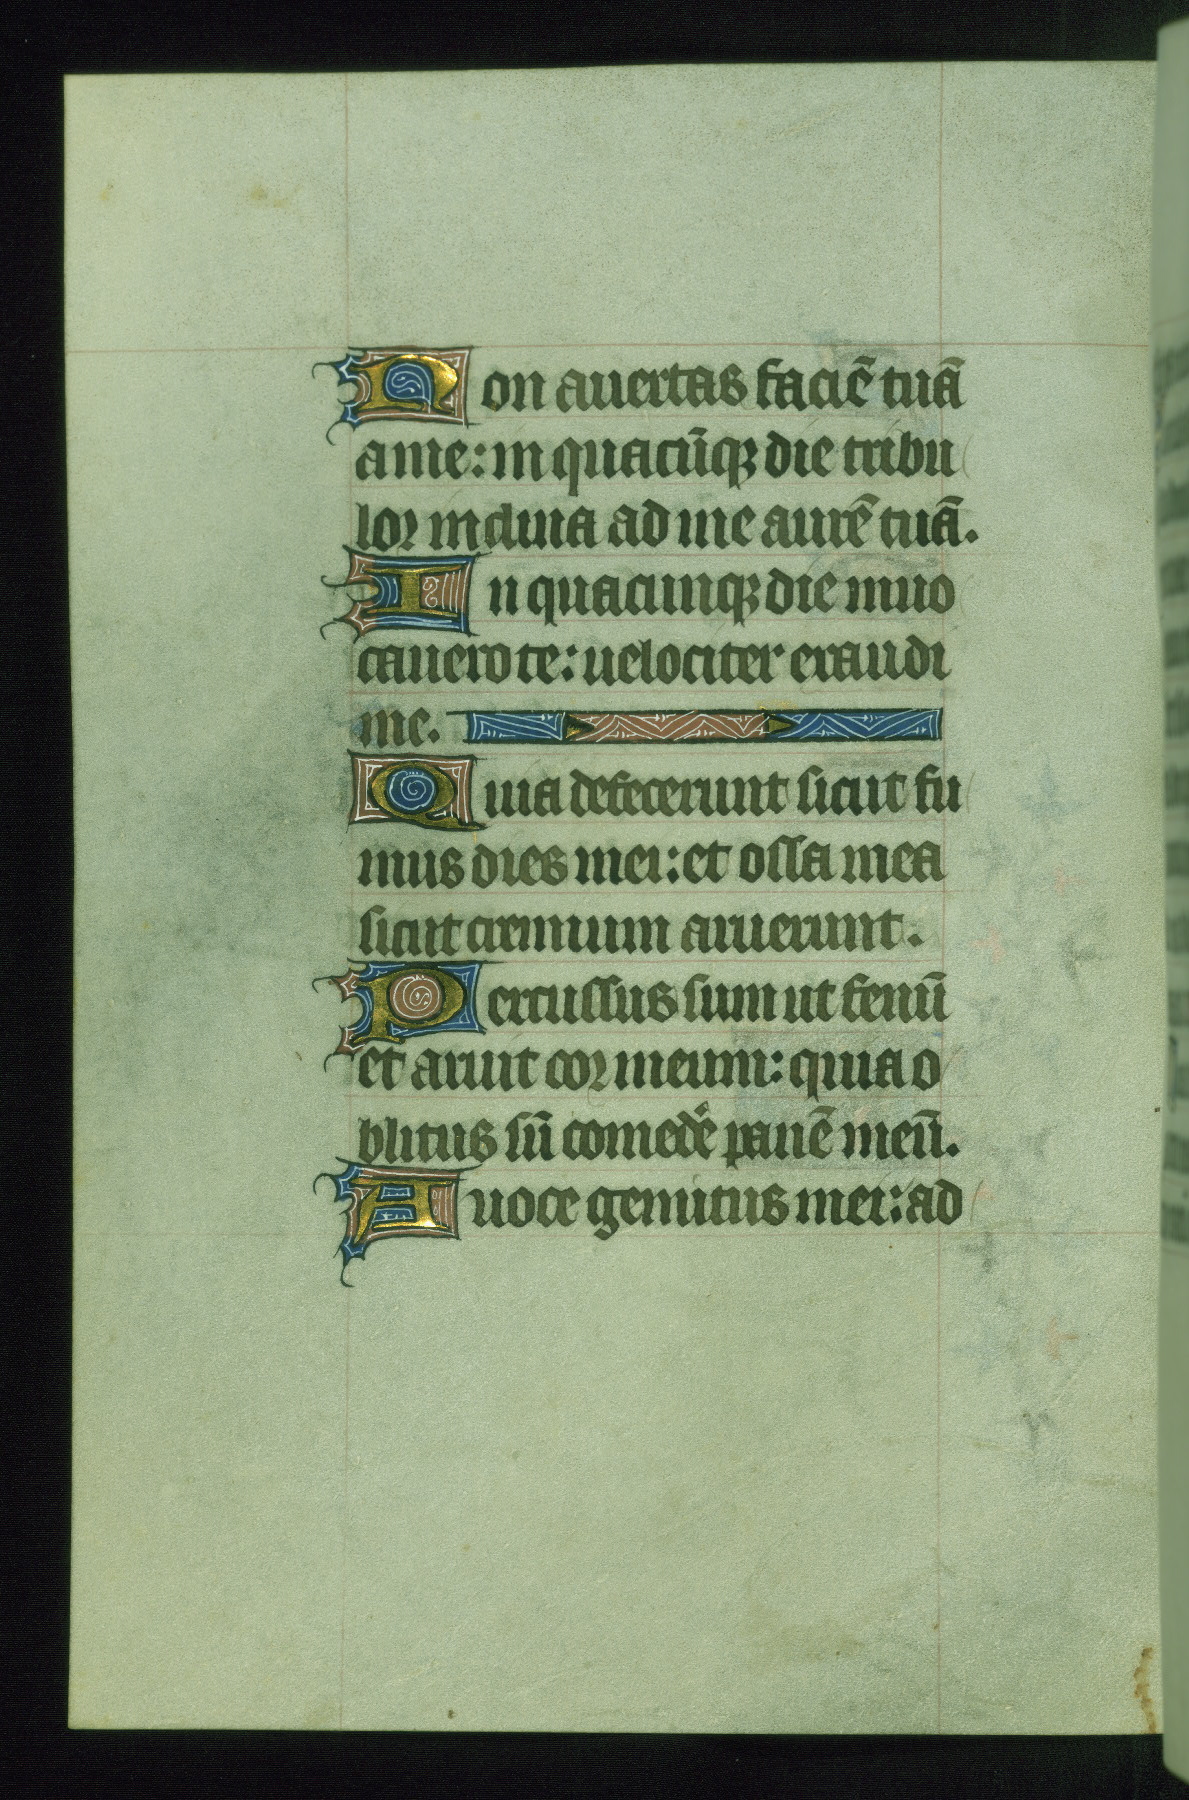 Non auertas faciē tuā
a me: in quacūqꝫ die tribu
lor inclina ad me aurē tuā.
In quacunqꝫ die inuo
cauero te: uelociter exaudi
me.
Quia defecerunt sicut fu
mus dies mei: et ossa mea
sicut cremium aruerunt.
Percussus sum ut fenū
et aruit cor meum: quia o
blitus sū comedē panē meū.
A uoce gemitus mei: ad